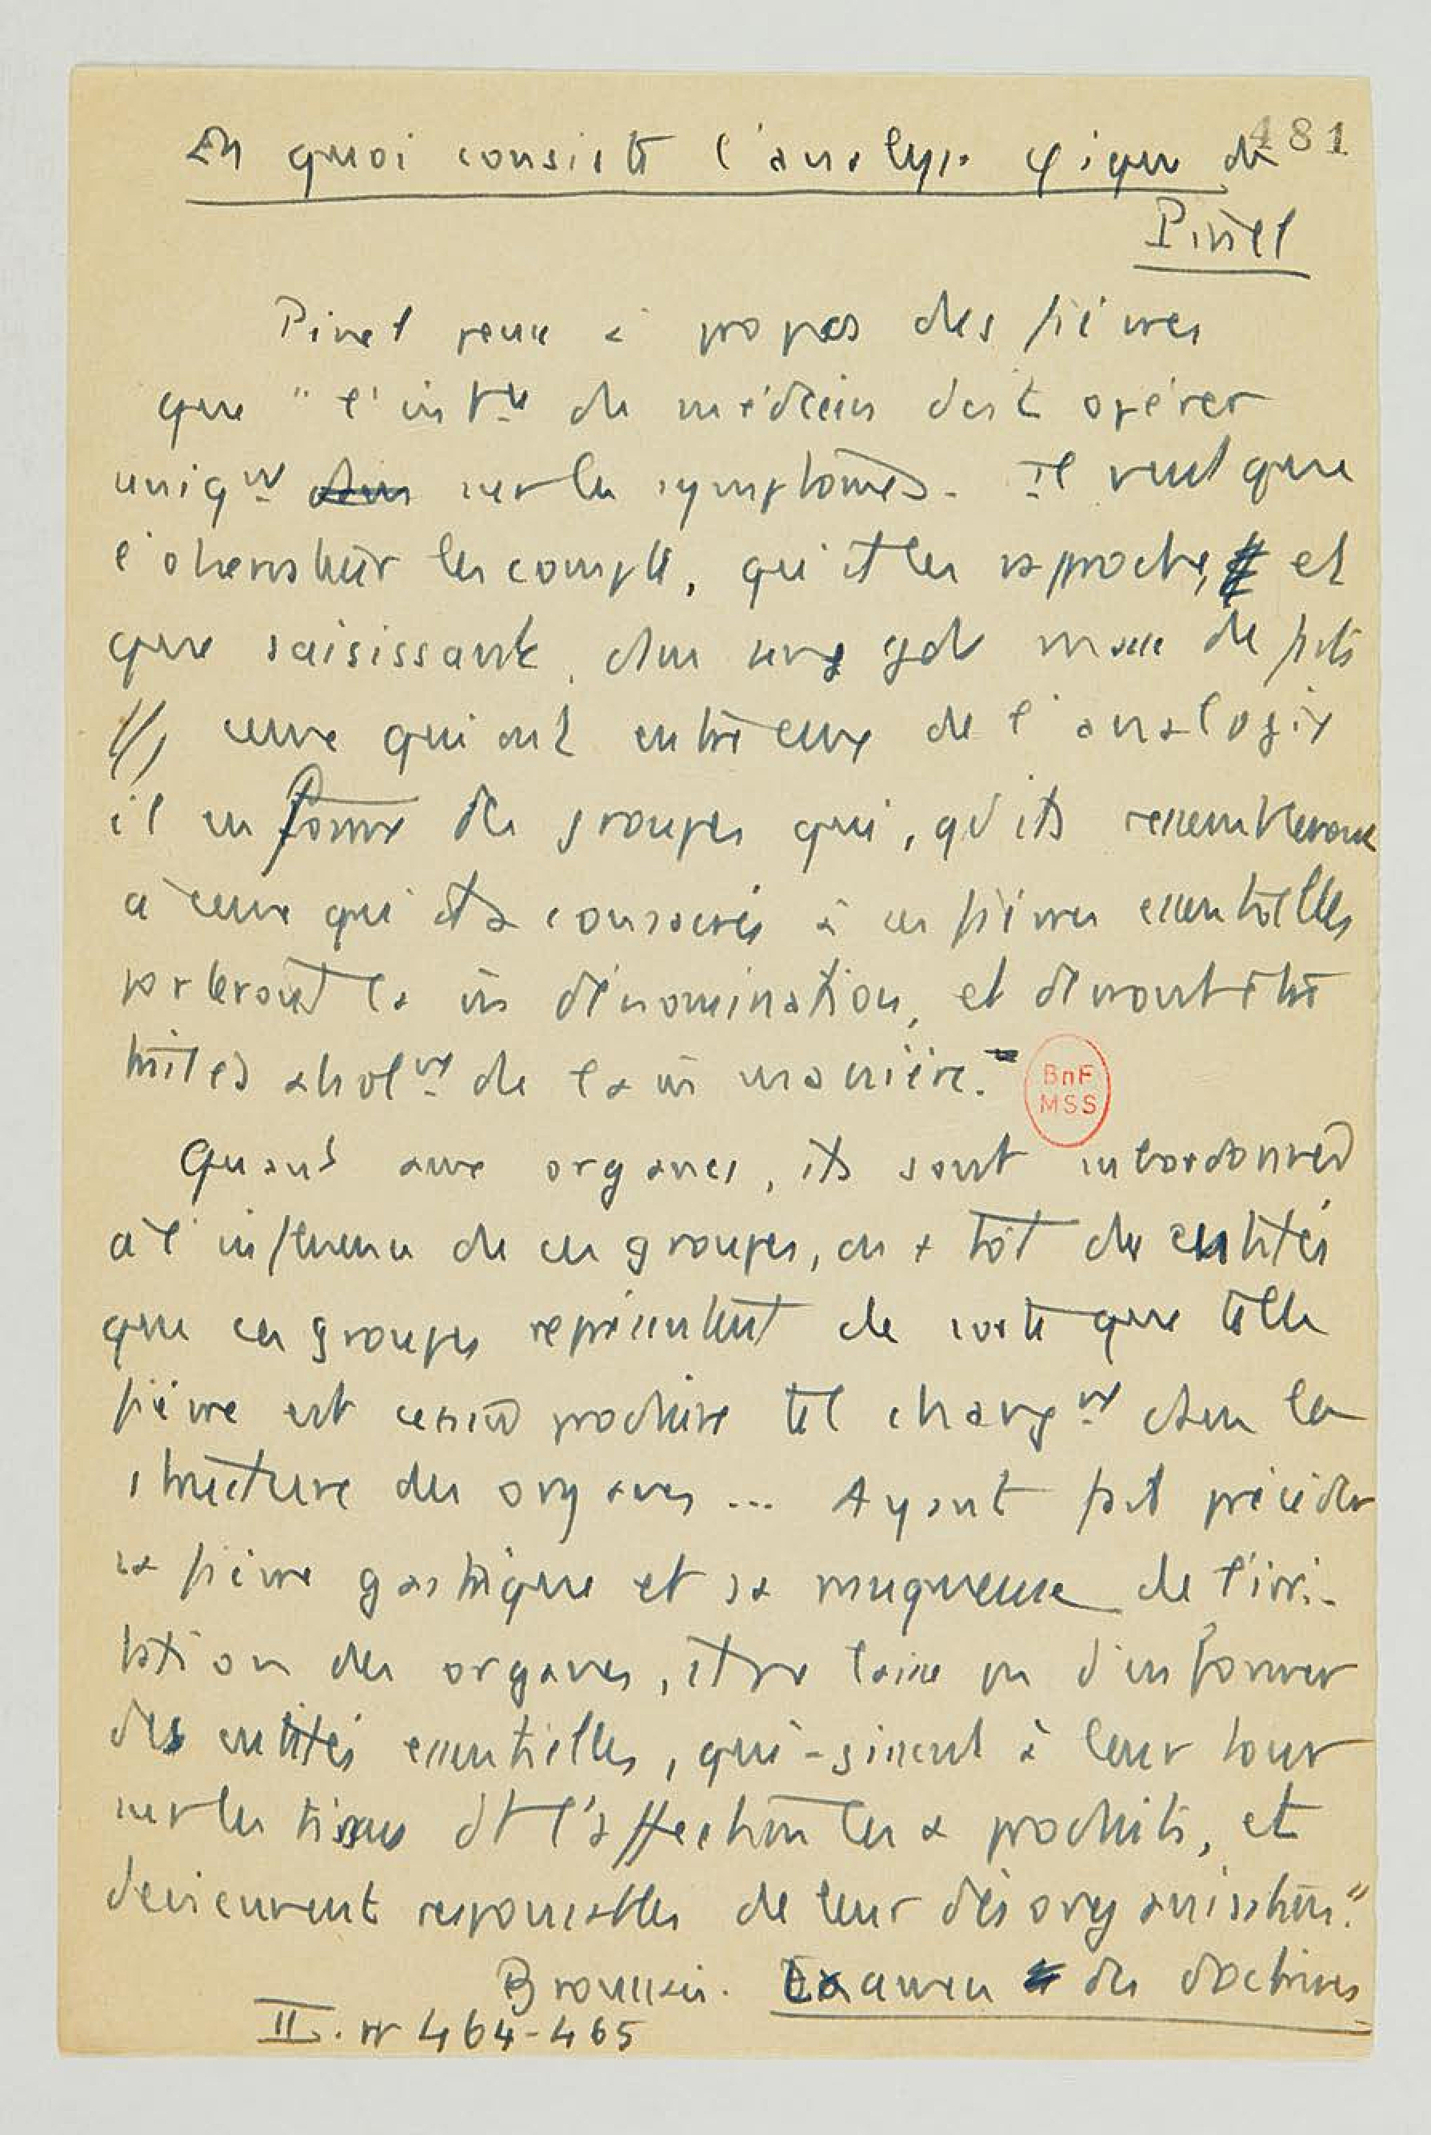 481
En quoi consiste l'analyse φique de
Pinel
Pinel pense à propos des fièvres
que "l'intn du médecin doit opérer
uniqnt sur les symptômes. Il veut que
l'observateur les compte, qu'il les rapproche, et
que saisissant, dans une gde masse de faits
ceux qui ont entre eux de l'analogie
il en forme des groupes qui, qd ils ressembleront
à ceux qui st consacrés à ces fièvres essentielles
porteront la m̂ dénomination, et devront être
traités absolnt de la m̂ manière."
Quant aux organes, ils sont subordonnés
à l'influence de ces groupes, ou + tôt des entités
que ces groupes représentent de sorte que telle
fièvre est censée produire tel changnt dans la
structure des organes ... Ayant fait précéder
sa fièvre gastrique et sa muqueuse de l'irri-
tation des organes, il ne laisse pas d'en former
des entités essentielles, qui agissent à leur tour
sur les tissus dt l'affection les a produits, et
deviennent responsables de leur désorganisation."
Broussais. Examen des doctrines
II. pp 464-465
BnF
MSS